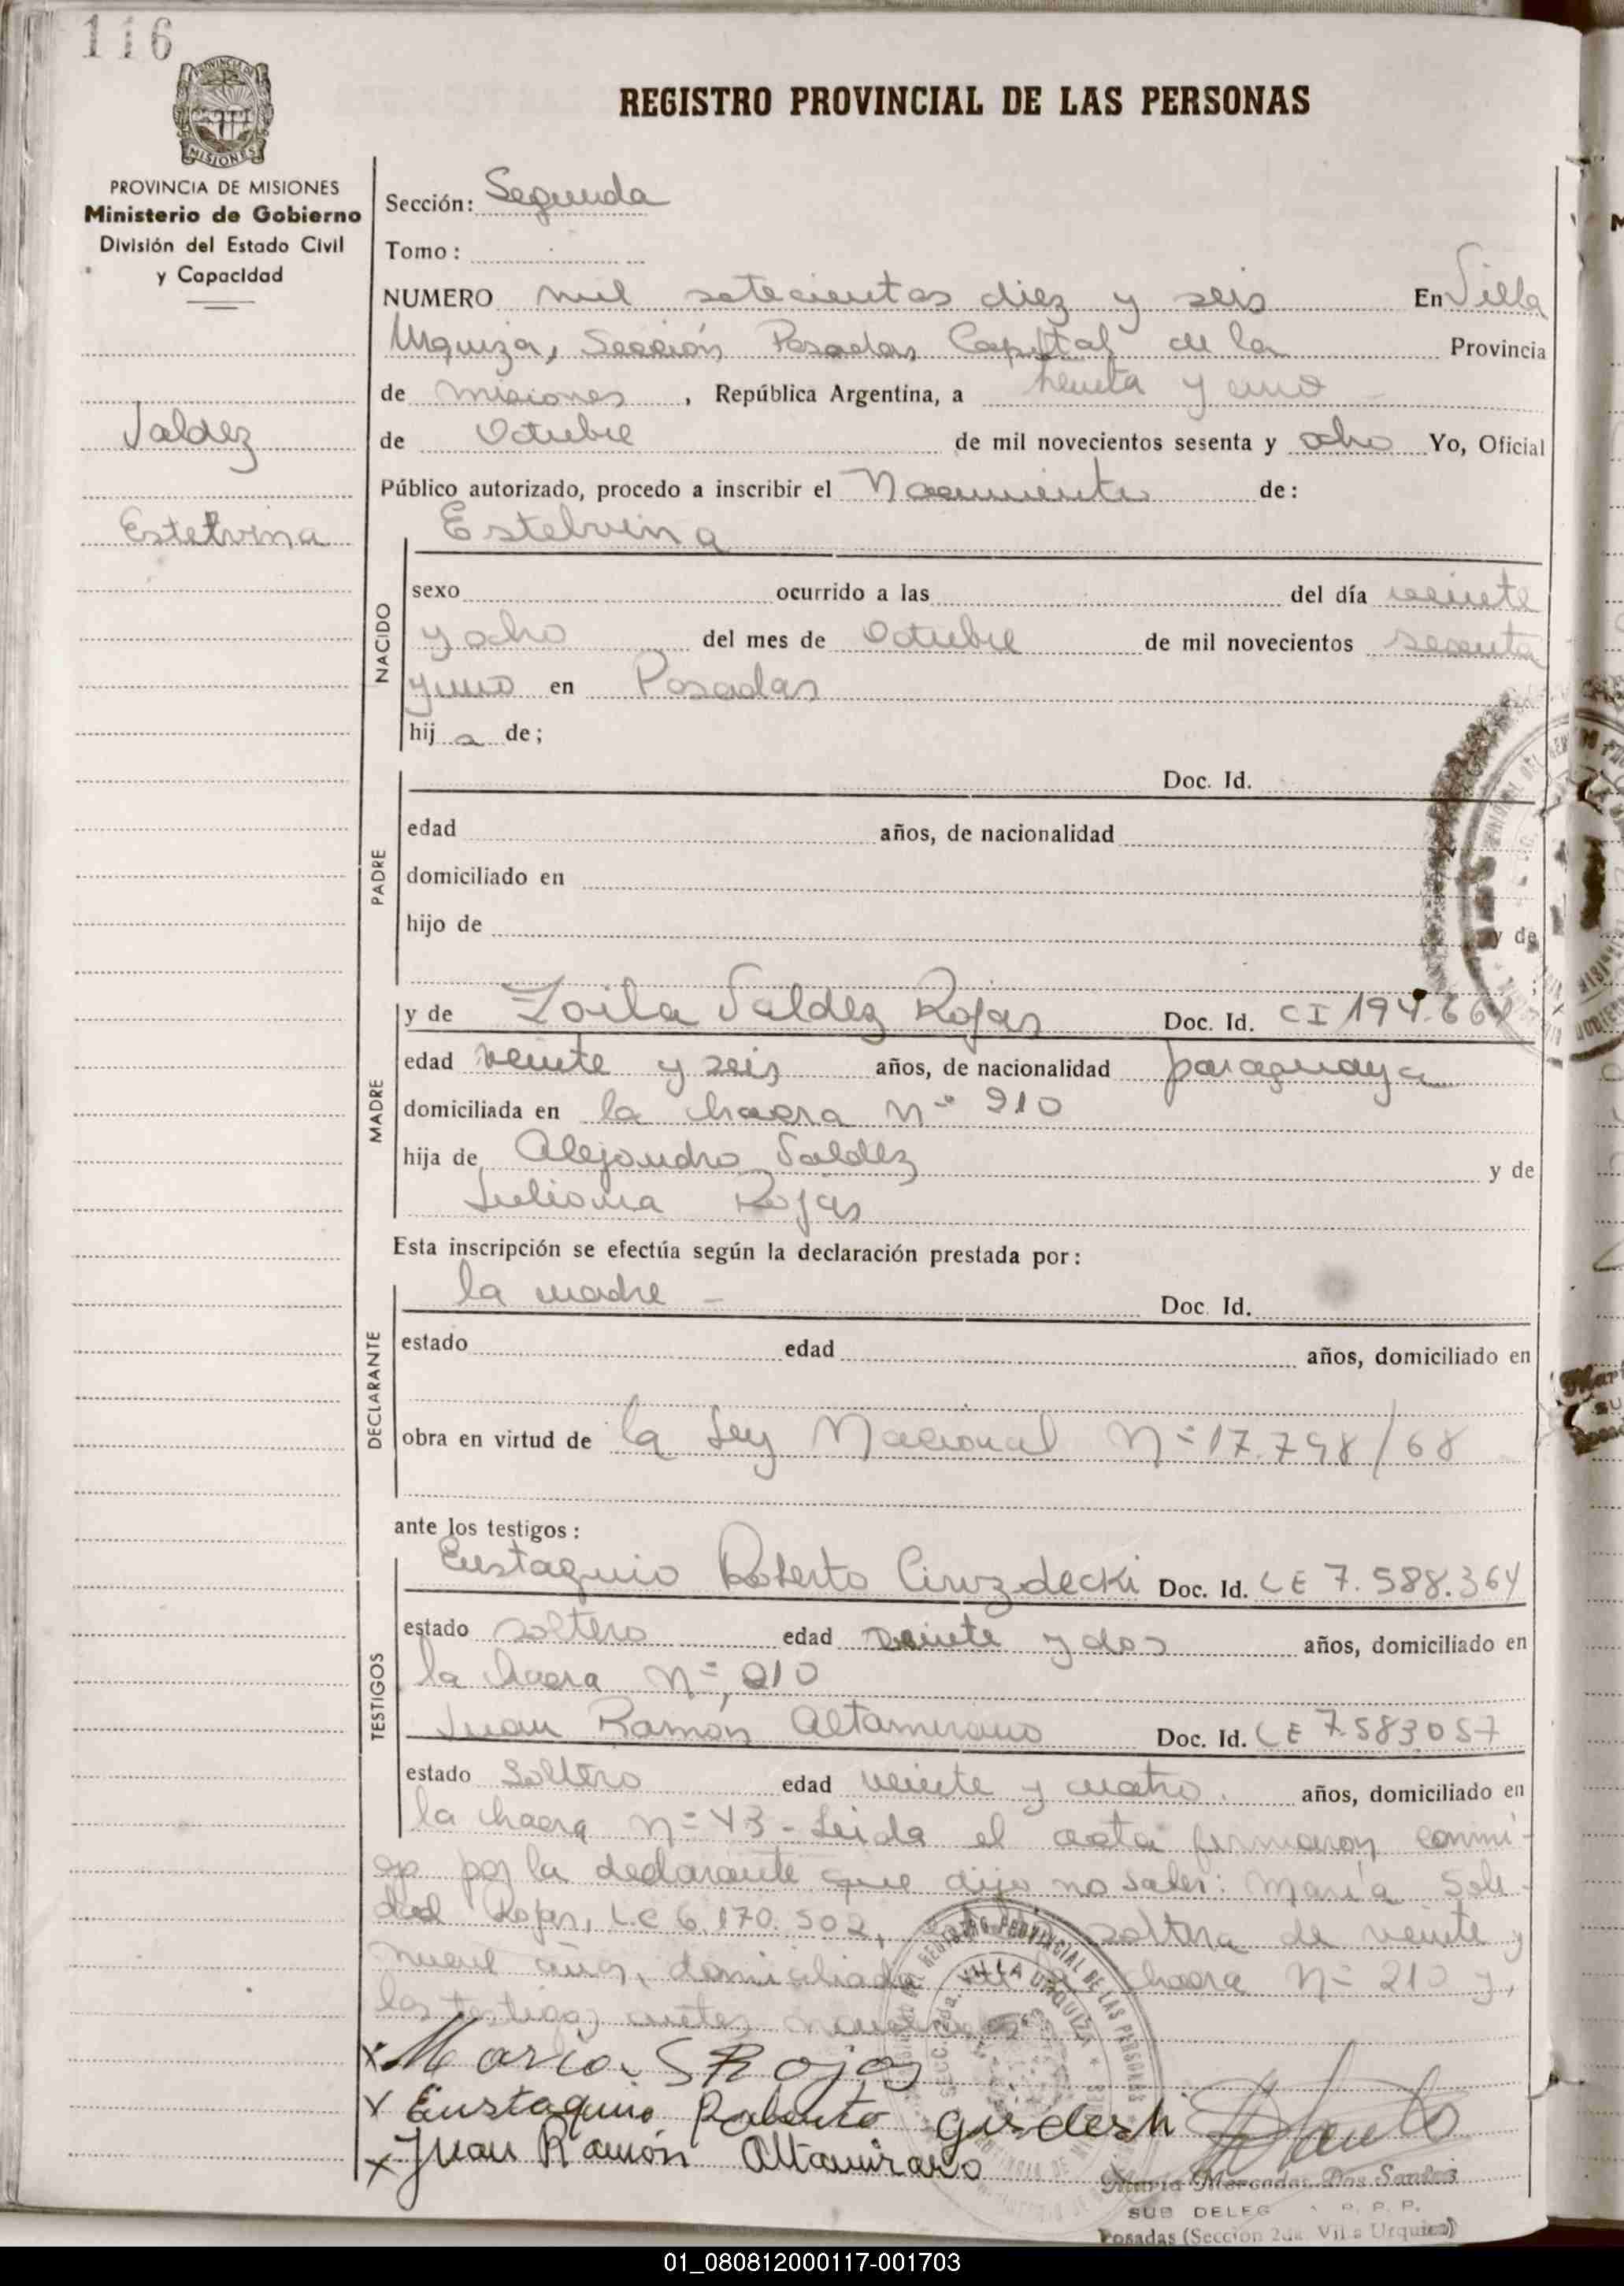 116
PROVINCIA DE
MISIONES
REGISTRO PROVINCIAL DE LAS PERSONAS
PROVINCIA DE MISIONES
Ministerio de Gobierno
División del Estado Civil
y Capacidad
Sección: Segunda
Tomo:
NUMERO mil setecientos diez y seis En Villa
Urquiza, Sección Posadas Capital de la Provincia
de misiones, República Argentina, a treinta y uno
Valdez
de Octubre de mil novecientos sesenta y ocho Yo, Oficial
Público autorizado, procedo a inscribir el Nacimiento de:
Estelvina
Estelvina
NACIDO
sexo ocurrido a las del día veinte
y ocho del mes de Octubre de mil novecientos sesenta
y uno en Posadas
hij a de;
PADRE
Doc. Id.
edad años, de nacionalidad
domiciliado en
hijo de y de
MADRE
y de Zoila Valdez Rojas Doc. Id. CI 194.664
edad veinte y seis años, de nacionalidad paraguaya
domiciliada en la chacra Nº 210
hija de Alejandro Valdez y de
Juliana Rojas
Esta inscripción se efectúa según la declaración prestada por:
DECLARANTE
la madre - Doc. Id.
estado edad años, domiciliado en
obra en virtud de la Ley Nacional Nº 17.798/68
ante los testigos:
TESTIGOS
Eustaquio Roberto Ciruzdecki Doc. Id. LE 7.588.364
estado soltero edad veinte y dos años, domiciliado en
la chacra Nº 210
Juan Ramón Altamirano Doc. Id. LE 7.583057
estado Soltero edad veinte y cuatro. años, domiciliado en
la chacra Nº 43 - Leida el acta firmaron conmi-
go por la declarante que dijo no saber: María Sole-
dad Rojas, L.C 6.170.502, soltera de veinte y
nueve años, domiciliada en la chacra Nº 210 y,
los testigos antes
REGISTRO PROVINCIAL DE LAS PERSONAS
VILLA URQUIZA
x Maria S Rojas
x Eustaquio Roberto
x Juan Ramón Altamirano
Maria Mercedes Dos Santos
SUB DELEG R. P. P.
Posadas (Sección 2da. Villa Urquiza)
01_080812000117-001703